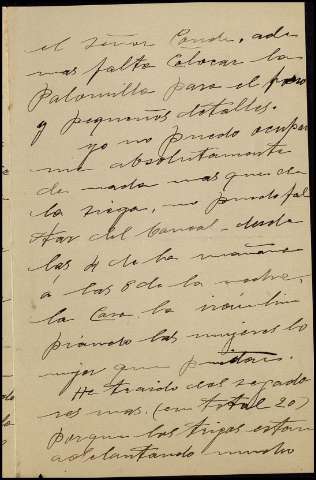 el Señor Conde, ade
mas falta Colocar la
Palomilla para el
y pequeños detalles.
yo no puedo ocupar
me absolutamente
de nada mas que de
la siega, no puedo fal
tar del Corral desde
las 4 de la mañana
á las 8 de la noche,
la Casa la irán lim
piando las mujeres lo
mejor que puedan.
He traido dos segado
res mas. (en total 20)
porque los trigos estan
adelantando mucho